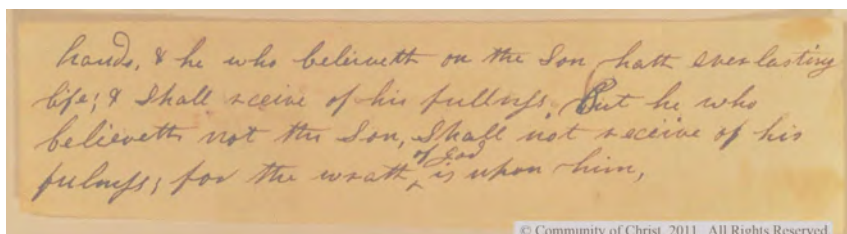 hands, & he who believeth on the Son hath everlasting
life; & Shall receive of his fullness. But he who
believeth not the Son, Shall not receive of his
of God,
fulness; for the wrath ^ is upon him,
© Community of Christ, 2011. All Rights Reserved